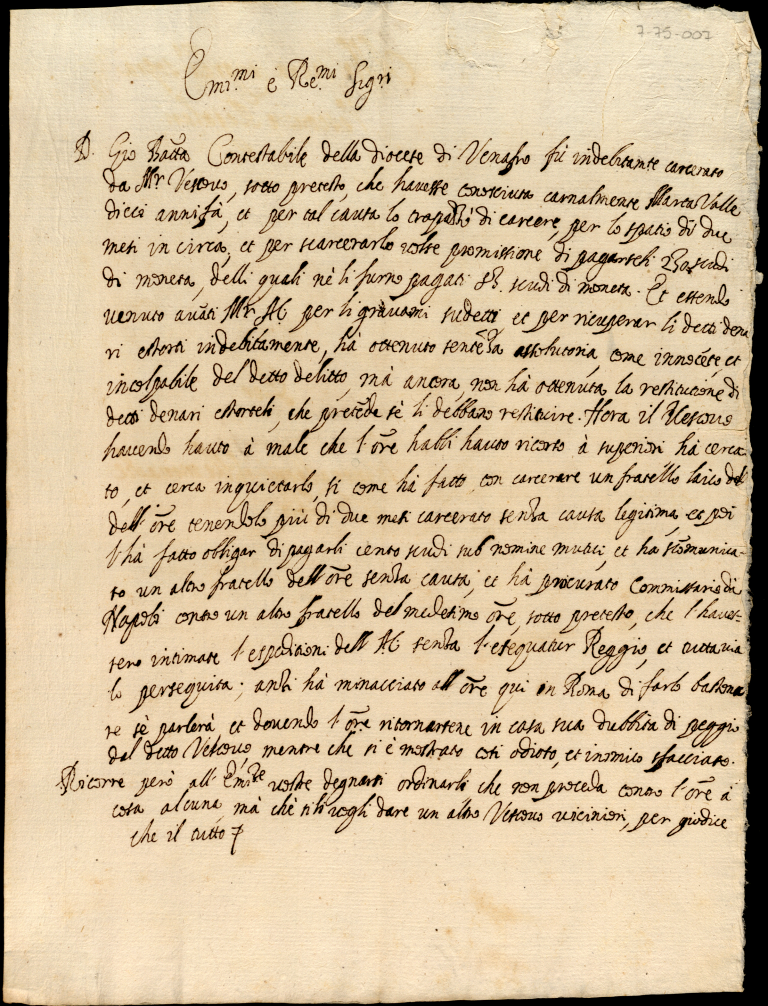 7-75-007
Emi.mi e Re.mi Sig.ri
D. Gio Batta Contestabile della diocese di Venafro fù indebitamte carcerato
da Mr Vescovo, sotto pretesto, che havesse conosciuta carnalmente Marca Valle
dieci anni fà, et per tal causa lo di carcere, per lo spatio di due
mesi in circa, et per scarcerarlo volse promissione di pagarseli scudi
di moneta, delli quali nè li furno pagati scudi di moneta. Et essendo
venuto avāti Mr. per li gravami sudetti et per ricuperar li detti dena
ri estorti indebitamente, hà ottenuto sentēza assolutoria, come innocēte, et
incolpabile del detto delitto, mà ancora non hà ottenuta la restitutione di
detti denari estorteli, che pretēde sè li debbano restituire. Hora il Vescovo
havendo hauto à male che l'ōre habbi hauto ricorso à superiori hà cerca
to, et cerca inquietarlo, si come hà fatto con carcerare un fratello laico del
dell'ōre tenendolo più di due mesi carcerato senza causa legitima, et poi
l'hà fatto obligar di pagarli cento scudi sub nomine mutui, et ha scōmunica-
to un altro fratello dell'ōre senza causa, et hà procurato Commissario di
Napoli contro un altro fratello del medesimo ōre, sotto pretesto, che l'haves-
sero intimate l'espeditioni dell' senza l'esequatur Reggio, et tuttavia
lo perseguita; anzi hà minacciato all'ōre qui in Roma di farlo bastona
re sè parlerà, et dovendo l'ōre ritornarsene in casa sua dubbita di peggio
dal detto Vescovo, mentre che si è mostrato così odioso, et inimico sfacciato.
Ricorre però all'Emize vostre degnarsi ordinarli che non proceda contro l'ōre à
cosa alcuna, mà che si li vogli dare un altro Vescovo vicinieri, per giudice
che il tutto